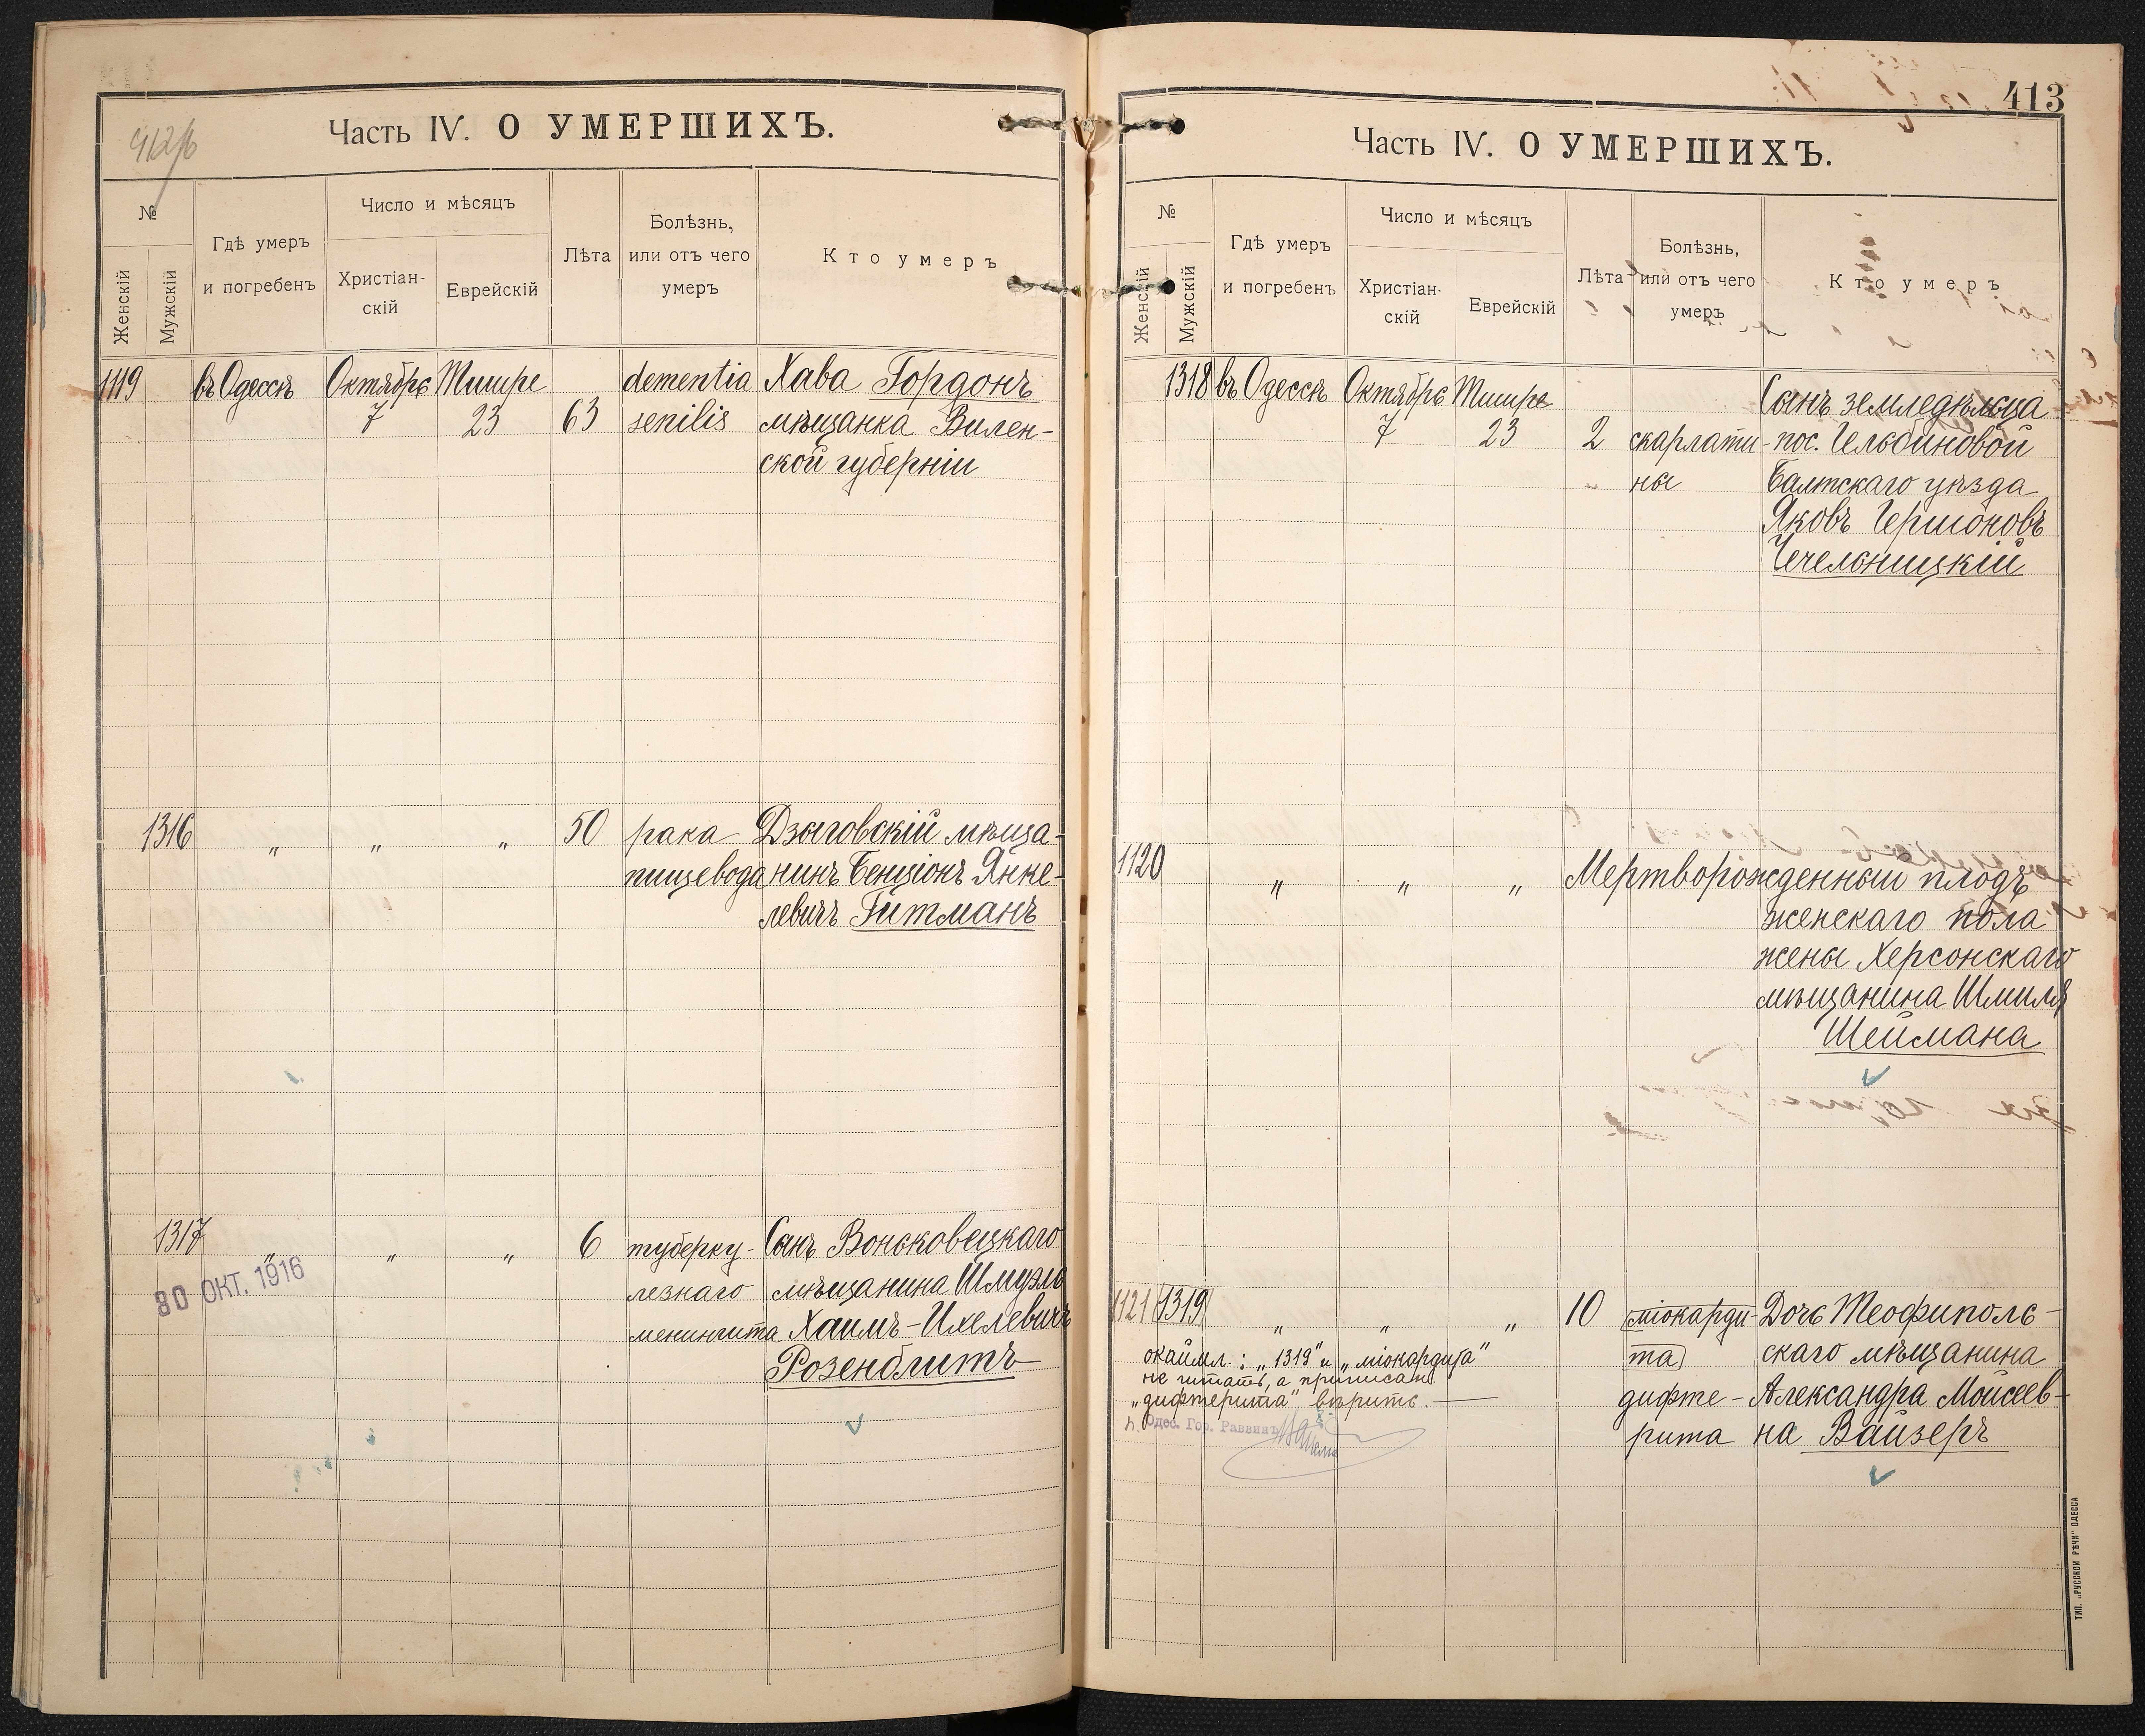 412/б
Часть IV. О УМЕРШИХЪ.
№
Женскій
Мужскій
Гдѣ умеръ
и погребенъ
Число и мѣсяцъ
Христіан-
скій
Еврейскій
Лѣта
Болѣзнь,
или отъ чего
умеръ
Кто умеръ
1119 въ Одессѣ Октябрь Тишре dementia Хава Гордонъ
7 23 63 senilis мѣщанка Вилен-
ской губерніи
1316 " " " 50 рака Дзыговскій мѣща-
пищевода нинъ Бенціонъ Янке-
левичъ Гитманъ
1317 " " " 6 туберку- Сынъ Воньковецкаго
лезнаго мѣщанина Шмуэль
менингита Хаимъ-Ихелевичъ
Розенблитъ
30 ОКТ. 1916
413
Часть IV. О УМЕРШИХЪ.
№
Женскій
Мужскій
Гдѣ умеръ
и погребенъ
Число и мѣсяцъ
Христіан-
скій
Еврейскій
Лѣта
Болѣзнь,
или отъ чего
умеръ
Кто умеръ
1318 въ Одессѣ Октябрь Тишре Сынъ земледѣльца
7 23 2 скарлати- пос. Гельбиновой
ны Балтскаго уѣзда
Яковъ Гершоновъ
Чечельницкій
1120 " " " Мертворожденный плодъ
женскаго пола
жены Херсонскаго
мѣщанина Шмиля
Шеймана
1121 1319 " " " 10 міокарди- Дочь Теофиполь-
та скаго мѣщанина
дифте- Александра Моисеев-
рита на Вайзеръ
окаймл.: "1319" и "міокардита"
не читать, а приписан.
"дифтерита" вѣрить.
Одес. Гор. Раввинъ
ТИП. „РУССКОЙ РѢЧИ" ОДЕССА